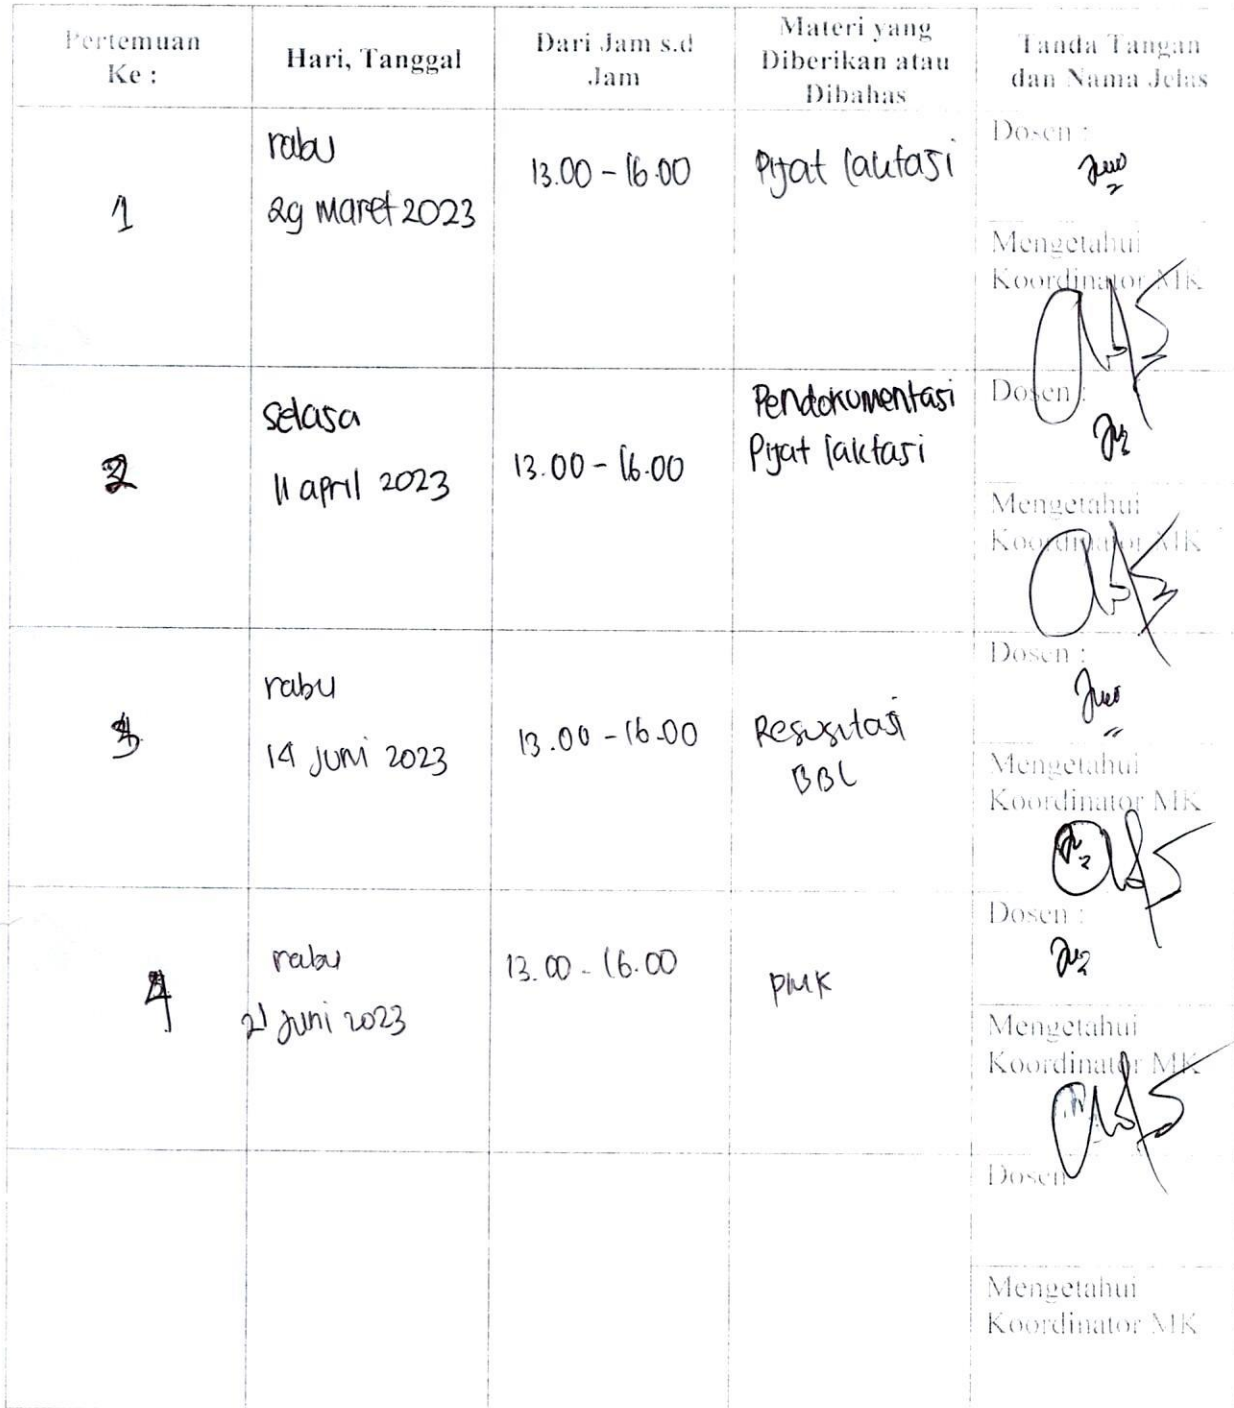 Pertemuan
Ke :
Hari, Tanggal
Dari Jam s.d
Jam
Materi yang
Diberikan atau
Dibahas
Tanda Tangan
dan Nama Jelas
1
rabu
29 maret 2023
13.00 - 16.00
Pijat laktasi
Dosen :
Mengetahui
Koordinator MK
2
selasa
11 april 2023
13.00 - 16.00
Pendokumentasi
Pijat laktasi
Dosen :
Mengetahui
Koordinator MK
3
rabu
14 juni 2023
13.00 - 16.00
Resusitasi
BBL
Dosen :
Mengetahui
Koordinator MK
4
rabu
21 juni 2023
13.00 - 16.00
PMK
Dosen :
Mengetahui
Koordinator MK
Dosen
Mengetahui
Koordinator MK